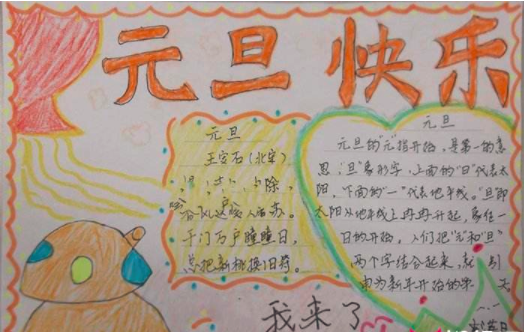 元旦快乐
元旦
王安石(北宋)
除,
风送暖入屠苏。
千门万户曈曈日,
总把新桃换旧符。
元旦
元旦的"元"指开始,是第一的意
思;"旦"象形字,上面的"日"代表太
阳,下面的"一"代表地平线。"旦"即
太阳从地平线上冉冉升起,象征一
日的开始。人们把"元"和"旦"
两个字结合起来,就引
申为新年开始的第
天
我来了